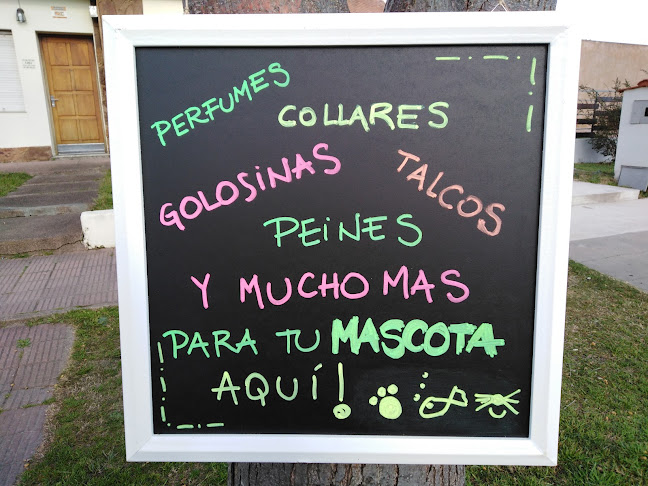 PERFUMES
COLLARES
GOLOSINAS
TALCOS
PEINES
Y MUCHO MAS
PARA TU MASCOTA
AQUÍ!